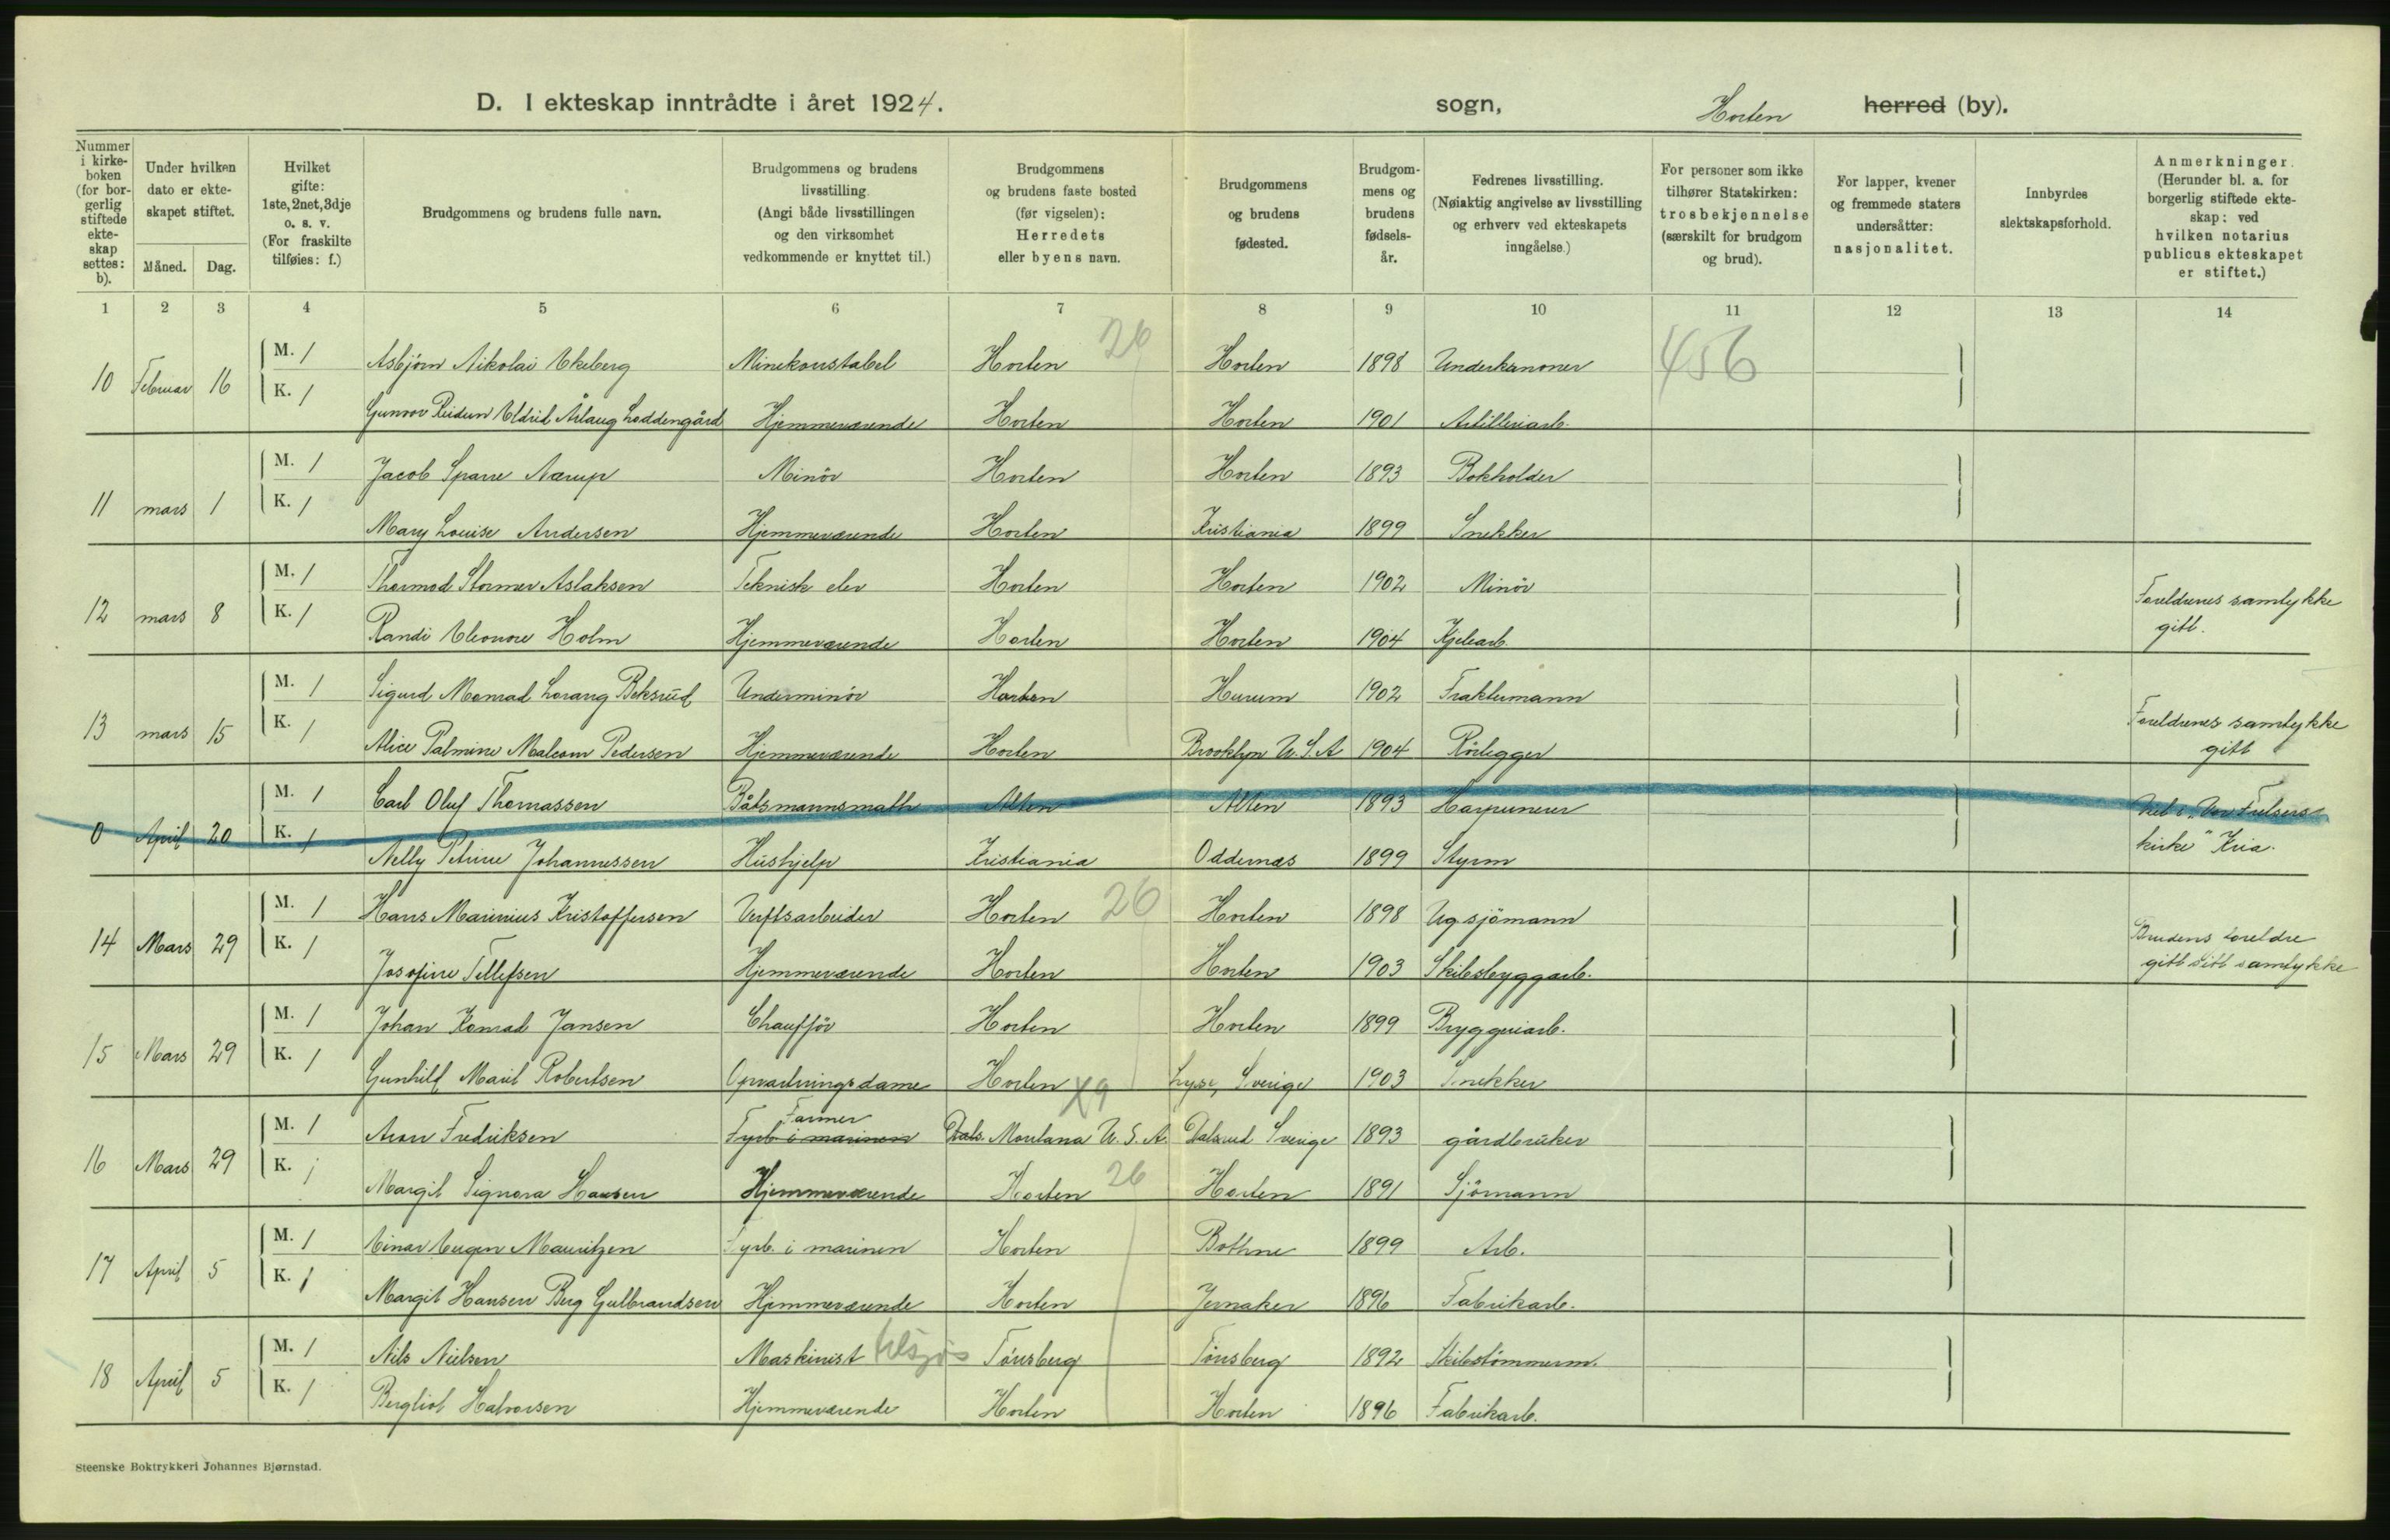 D. I ekteskap inntrådte i året 1924. sogn, Horten herred (by).
Nummer i kirke-boken (for bor-gerlig stiftede ekte-skap settes: b).
Under hvilken dato er ekte-skapet stiftet.
Måned. Dag.
Hvilket gifte: 1ste, 2net, 3dje o. s. v. (For fraskilte tilføies: f.)
Brudgommens og brudens fulle navn.
Brudgommens og brudens livsstilling (Angi både livsstillingen og den virksomhet vedkommende er knyttet til.)
Brudgommens og brudens faste bosted (før vigselen): Herredets eller byens navn.
Brudgommens og brudens fødested.
Brudgom-mens og brudens fødsels-år.
Fedrenes livsstilling. (Nøiaktig angivelse av livsstilling og erhverv ved ekteskapets inngåelse.)
For personer som ikke tilhører Statskirken: trosbekjennelse (særskilt for brudgom og brud).
For lapper, kvener og fremmede staters undersåtter: nasjonalitet.
Innbyrdes slektskapsforhold.
Anmerkninger. (Herunder bl. a. for borgerlig stiftede ekte-skap: ved hvilken notarius publicus ekteskapet er stiftet.)
1 2 3 4 5 6 7 8 9 10 11 12 13 14
M. 1 Asbjørn Nikolai Ekeberg Minekonstabel Horten 26 Horten 1898 Underkanoner 456
10 Februar 16
K. 1 Gunvor Reidun Eldrid Årlaug Loddengård Hjemmeværende Horten Horten 1901 Artilleriarb.
M. 1 Jacob Sparre Nærup Minör Horten Horten 1893 Bokholder
11 mars 1
K. 1 Mary Louise Andersen Hjemmeværende Horten Kristiania 1899 Snekker
M. 1 Thormod Stormer Aslaksen Teknisk elev Horten Horten 1902 Minör
12 mars 8 Foreldrenes samtykke
K. 1 Randi Eleonore Holm Hjemmeværende Horten Horten 1904 Kjelearb. gitt.
M. 1 Sigurd Monrad Lorang Boksrud Underminör Horten Hurum 1902 Fraktemann
13 mars 15 Foreldrenes samtykke
K. 1 Alice Palmine Malcom Pedersen Hjemmeværende Horten Brooklyn U.S.A 1904 Rörlegger gitt
M. 1 Carl Oluf Thomassen Båtsmannsmath Alten Alten 1893 Harpunerer Viet i "Vor Frelsers
0 April 20
K. 1 Nelly Petrine Johannessen Hushjelp Kristiania Oddernæs 1899 Styrm kirke" Kria.
M. 1 Hans Marinius Kristoffersen Verftsarbeider Horten 26 Horten 1898 Ug sjömann
14 Mars 29 Brudens foreldre
K. 1 Josofine Tellefsen Hjemmeværende Horten Horten 1903 Skibsbyggarb. gitt sitt samtykke
M. 1 Johan Konrad Jansen Chaufför Horten Horten 1899 Bryggeriarb.
15 Mars 29
K. 1 Gunhild Marit Robertsen Opvartningsdame Horten Lyse, Sverige 1903 Snekker
Farmer
M. 1 Aron Fredriksen Fyrb i marinen Dals Montana U.S.A. Dalsrud Sverige 1893 gårdbruker
16 Mars 29
K. 1 Margit Signora Hansen Hjemmeværende Horten 26 Horten 1891 Sjömann
M. 1 Einar Eugen Mauritzen Fyrb. i marinen Horten Bothne 1899 Arb.
17 April 5
K. 1 Margit Hansen Berg Gulbrandsen Hjemmeværende Horten Jernaker 1896 Fabrikarb.
M. 1 Nils Nielsen Maskinist Tönsberg Tönsberg 1892 Skibstömmerm.
18 April 5
K. 1 Bergliot Halvorsen Hjemmeværende Horten Horten 1896 Fabrikarb.
Steenske Boktrykkeri Johannes Bjørnstad.